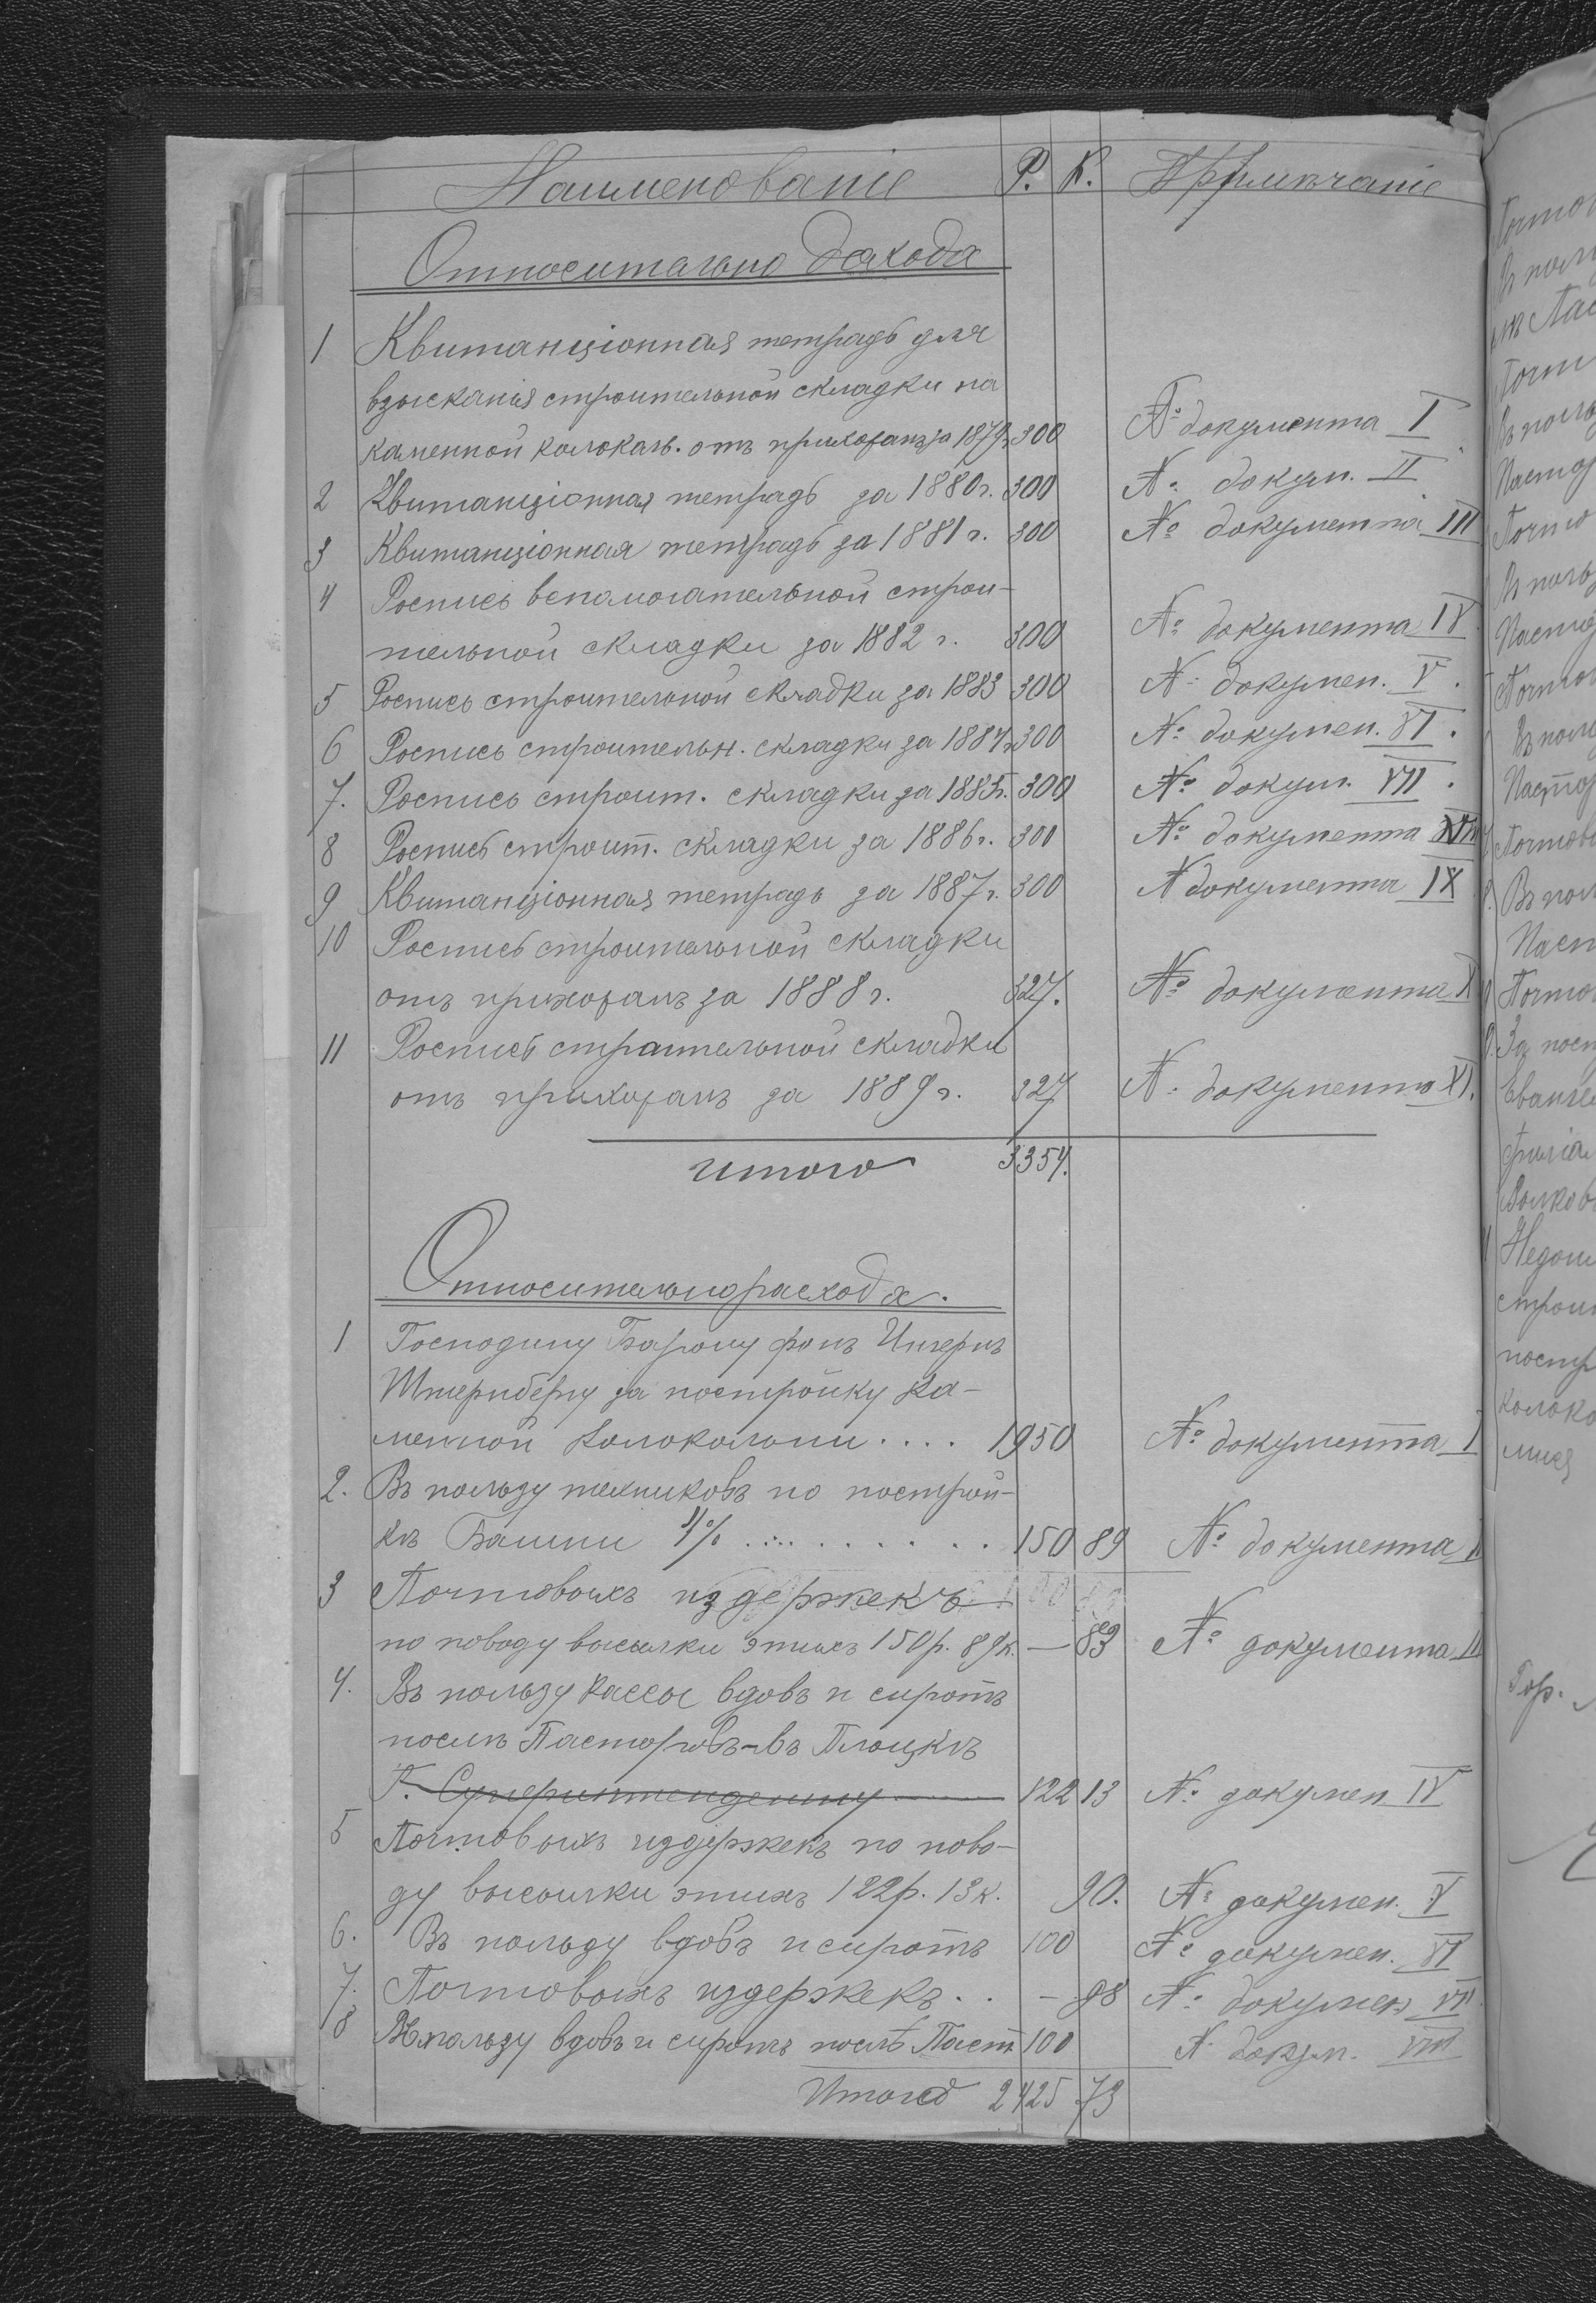 Наименованіе Р. К. Примѣчаніе
Относительно дохода
1 Квитанціонная тетрадь для
взысканія строительной складки на
каменной колокал. отъ прихожанъ за 1879 г. 300 № документа I
2 Квитанціонная тетрадь за 1880 г. 300 № докум. II
3 Квитанціонная тетрадь за 1881 г. 300 № документа III
4 Роспись вспомогательной строи-
тельной складки за 1882 г. 300 № документа IV
5 Роспись строительной складки за 1883 300 № докумен. V.
6 Роспись строительн. складки за 1884 г. 300 № докумен. VI.
7. Роспись строит. складки за 1885 г. 300 № докум. VII.
8 Роспись строит. складки за 1886 г. 300 № документа VIII
9 Квитанціонная тетрадь за 1887 г. 300 № документа IX
10 Роспись строительной складки
отъ прихожанъ за 1888 г. 327. № документа X
11 Роспись строительной складки
отъ прихожанъ за 1889 г. 327 № документа XI.
итого 3354.
Относительно расхода.
1 Господину Барону фонъ Унгернъ
Штернбергу за постройку ка-
менной колокольни .... 1950 № документа I
2. Въ пользу техниковъ по построй-
кѣ Башни 4% ......... 150 89 № документа II
3 Почтовыхъ издержекъ
по поводу высылки этихъ 150 р. 89 к. — 83 № документа III
4. Въ пользу кассы вдовъ и сиротъ
послѣ Пасторовъ-въ Плоцкѣ
Г. Суперинтенденту 122 13 № докумен IV
5 Почтовыхъ издержекъ по пово-
ду высылки этихъ 122 р. 13 к. 90. № докумен. V
6. Въ пользу вдовъ и сиротъ 100 № докумен. VI
7. Почтовыхъ издержекъ .. — 98 № докумен VII
8 Въ пользу вдовъ и сиротъ послѣ Паст 100 № докум. VIII
Итого 2425 73